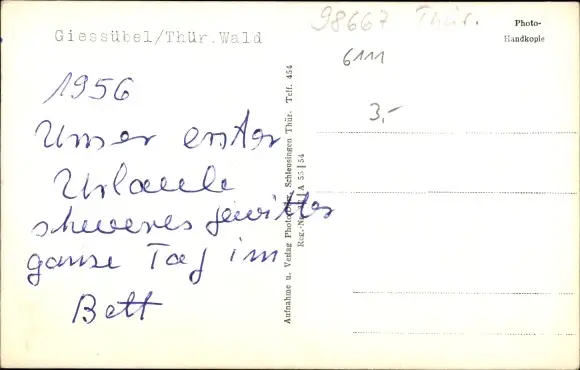 Giessübel/Thür.Wald
98667 Thür.
Photo-
Handkopie
6111
3,-
1956
Unser erster
Urlaub
schweres gewitter
ganze Tag im
Bett
Aufnahme u. Verlag Photo Schleusingen Thür. Telf. 454
Reg.-No A 55/54